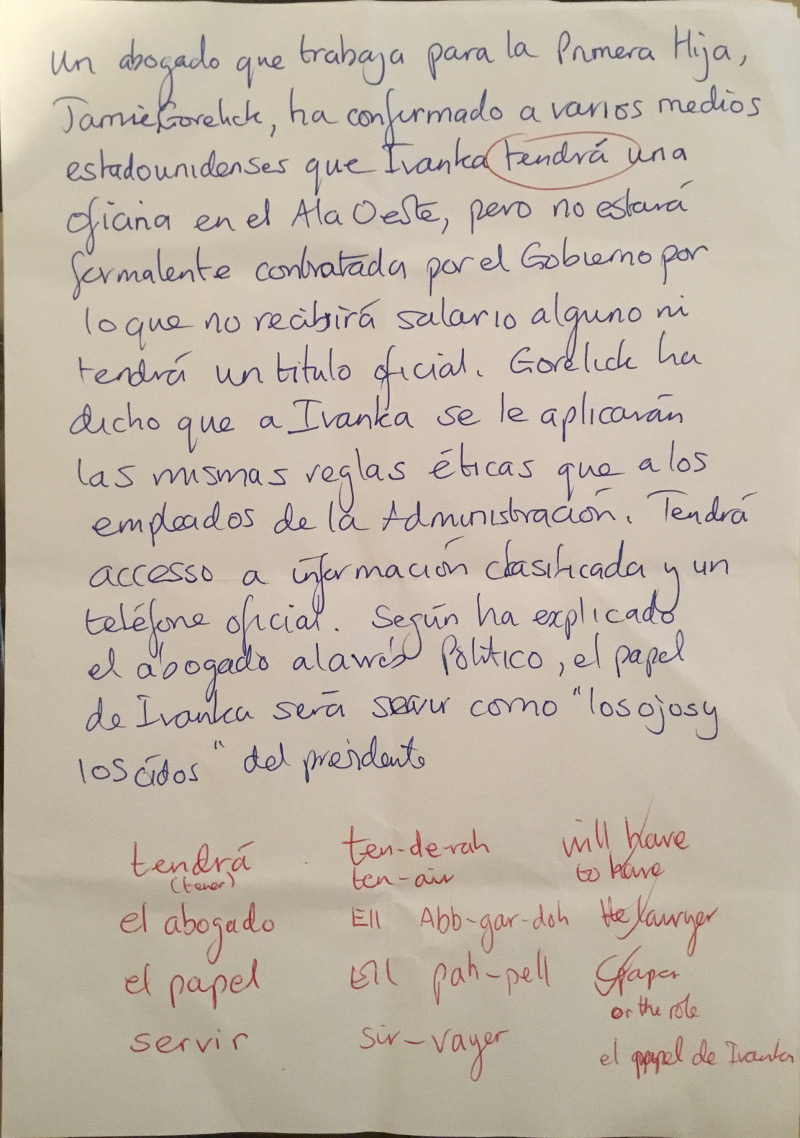 Un abogado que trabaja para la Primera Hija,
Jamie Gorelick, ha confirmado a varios medios
estadounidenses que Ivanka tendrá una
oficina en el Ala Oeste, pero no estará
formalente contratada por el Gobierno por
lo que no recibirá salario alguno ni
tendrá un titulo oficial. Gorelick ha
dicho que a Ivanka se le aplicarán
las mismas reglas éticas que a los
empleados de la Administración. Tendrá
accesso a información clasificada y un
teléfone oficial. Según ha explicado
el abogado a la Político, el papel
de Ivanka será servir como "los ojos y
los oídos" del presidente
tendrá ten-de-rah will have
(tener) ten-air to have
el abogado Ell Abb-gar-doh the lawyer
el papel Ell pah-pell paper
or the role
servir sir-vayer el papel de Ivanka